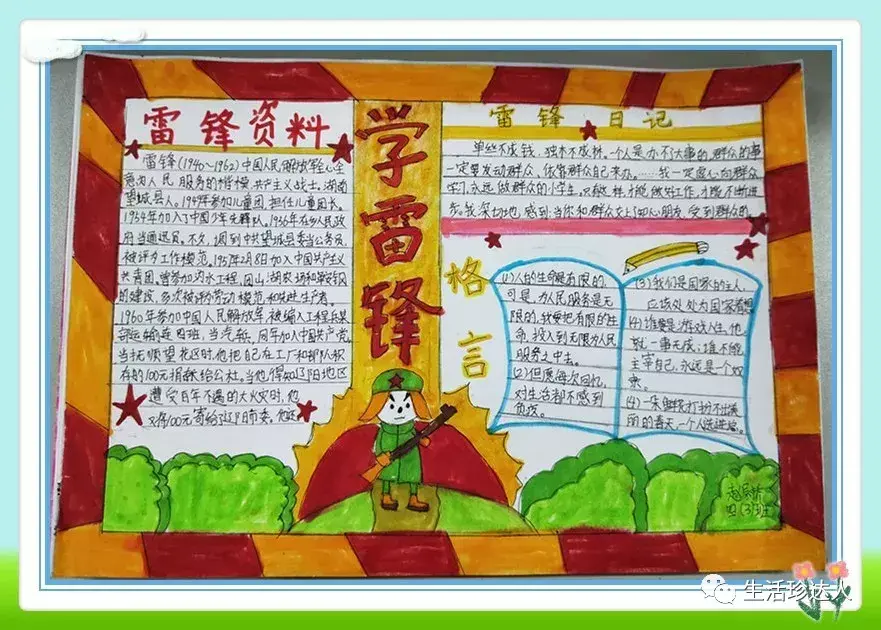 雷锋资料
雷锋(1940~1962)中国人民解放军全心全
意为人民服务的楷模,共产主义战士,湖南
望城县人。1949年参加儿童团,担任儿童团长。
1954年加入了中国少年先锋队,1956年在乡人民政
府当通迅员。不久,调到中共望城县委当公务员,
被评为工作模范。1957年2月8日加入中国共产主义
共青团,曾参加沩水工程,团山湖农场和鞍钢
的建设,多次被评为劳动模范和先进生产者。
1960年参加中国人民解放军,被编入工程兵某
部运输连四班,当汽车兵。同年加入中国共产党。
当抚顺望花区时,他把自己在工厂和部队积
存的100元捐献给公社。当他得知辽阳地区
遭受百年不遇的大水灾时,他
又将100元寄给了辽阳市委。
学雷锋
雷锋日记
单丝不成线,独木不成林。一个人是办不了大事的,群众的事
一定要发动群众,依靠群众自己来办。……我一定虚心向群众
学习,永远做群众的小学生。只有这样,才能做好工作,才能不断进
步。我深切地感到:当你和群众交上了知心朋友,受到群众的
格言
(1)人的生命是有限的,
可是,为人民服务是无
限的,我要把有限的生
命,投入到无限为人民
服务之中去。
(2)但愿每次回忆,
对生活都不感到
负疚。
(3)我们是国家的主人,
应该处处为国家着想
(4)谁要是游戏人生,他
就一事无成;谁不能
主宰自己,永远是一个奴
隶。
(4)一朵鲜花打扮不出美
丽的春天,一个人先进
四(3)班
生活珍达人